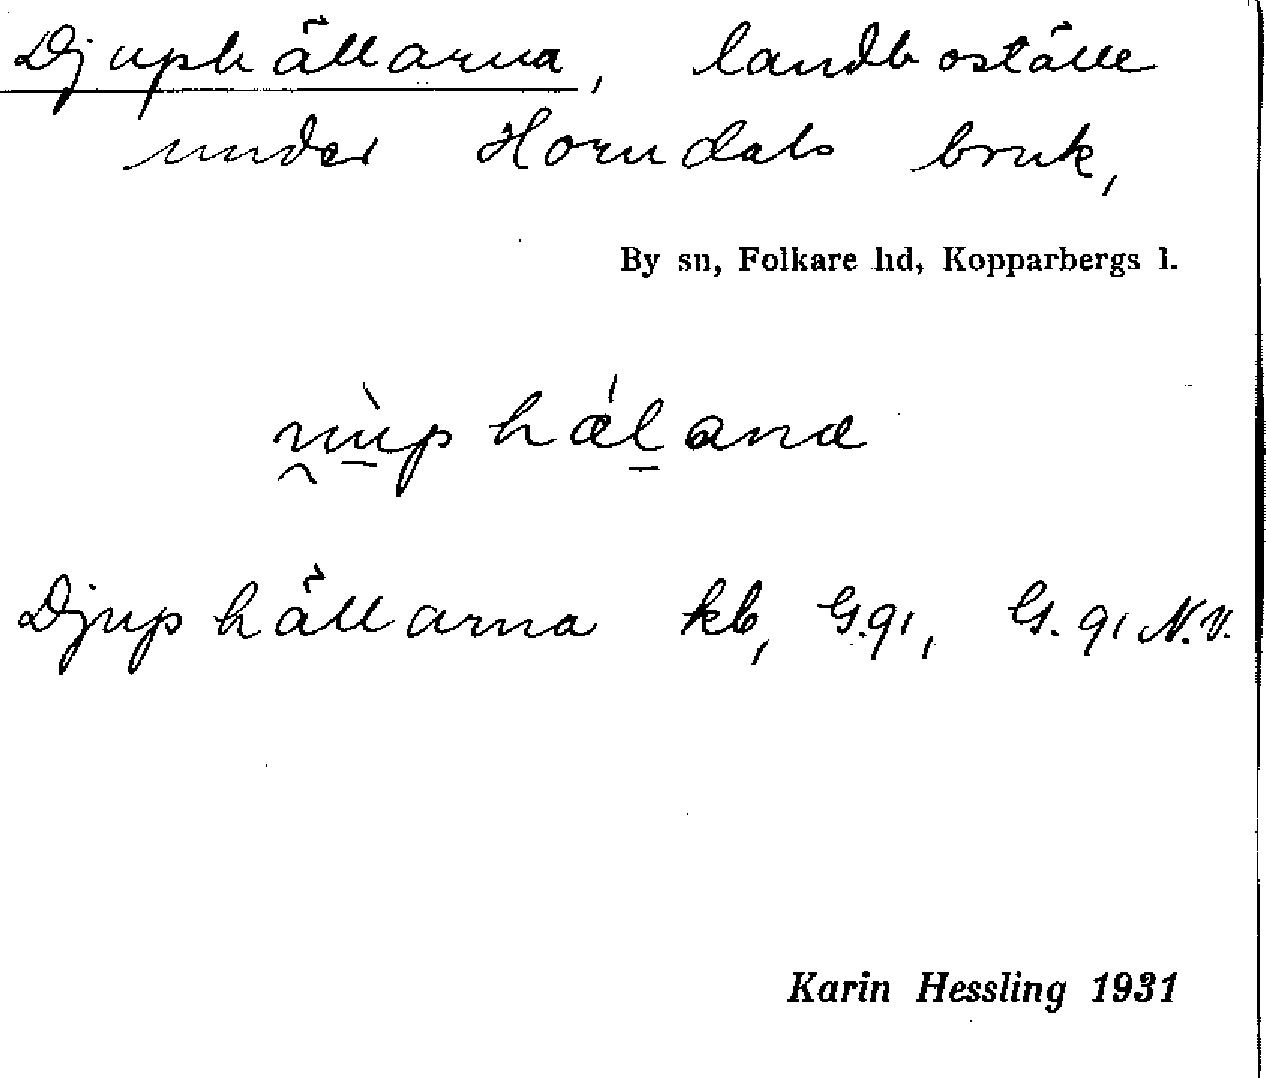 Djuphällarna, landboställe
under Horndals bruk,
By sn, Folkare hd, Kopparbergs l.
Djuphällarna kb, G.91, G.91 N.V.
Karin Hessling 1931